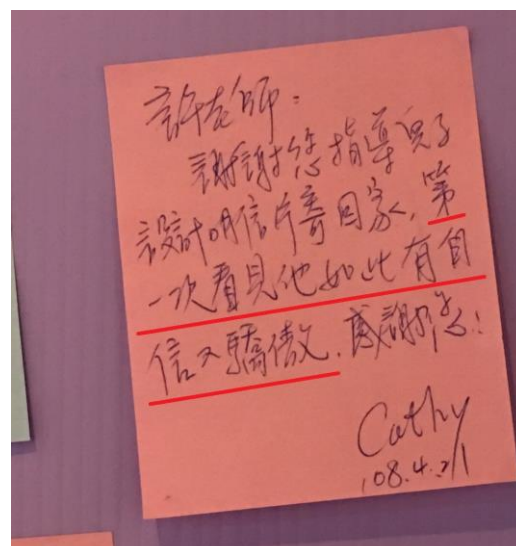 許老師：
謝謝您指導兒子
設計明信片寄回家，第
一次看見他如此有自
信又驕傲．感謝您！
Cathy
108.4.21